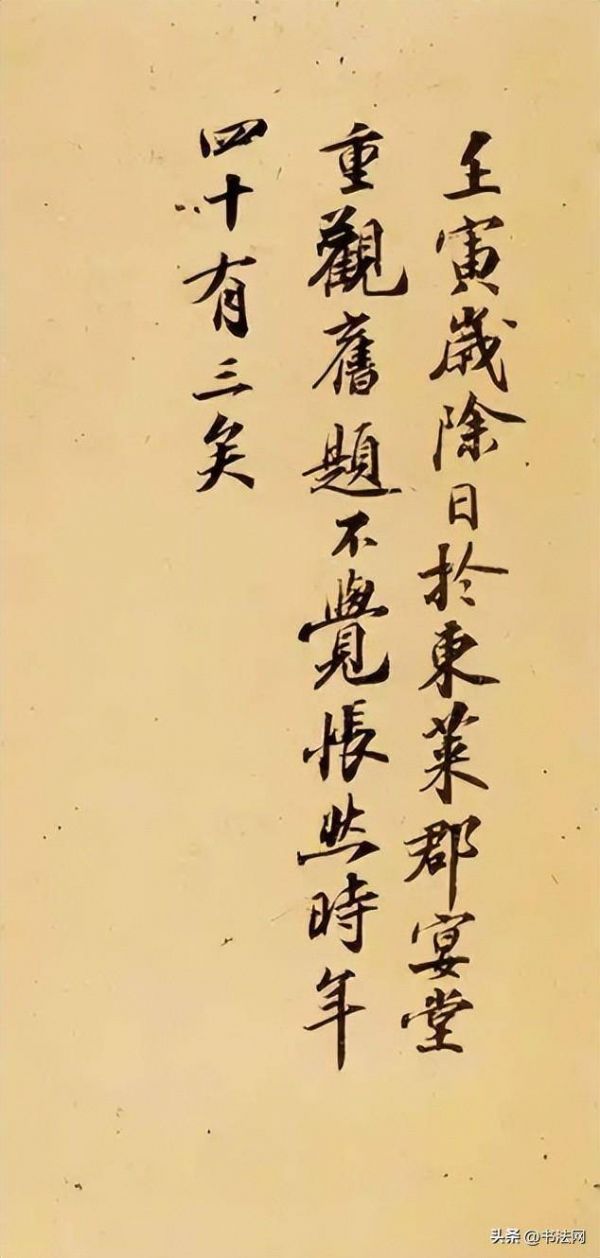 壬寅歲除日於東萊郡宴堂
重觀舊題不覺悵然時年
四十有三矣
头条 @书法网